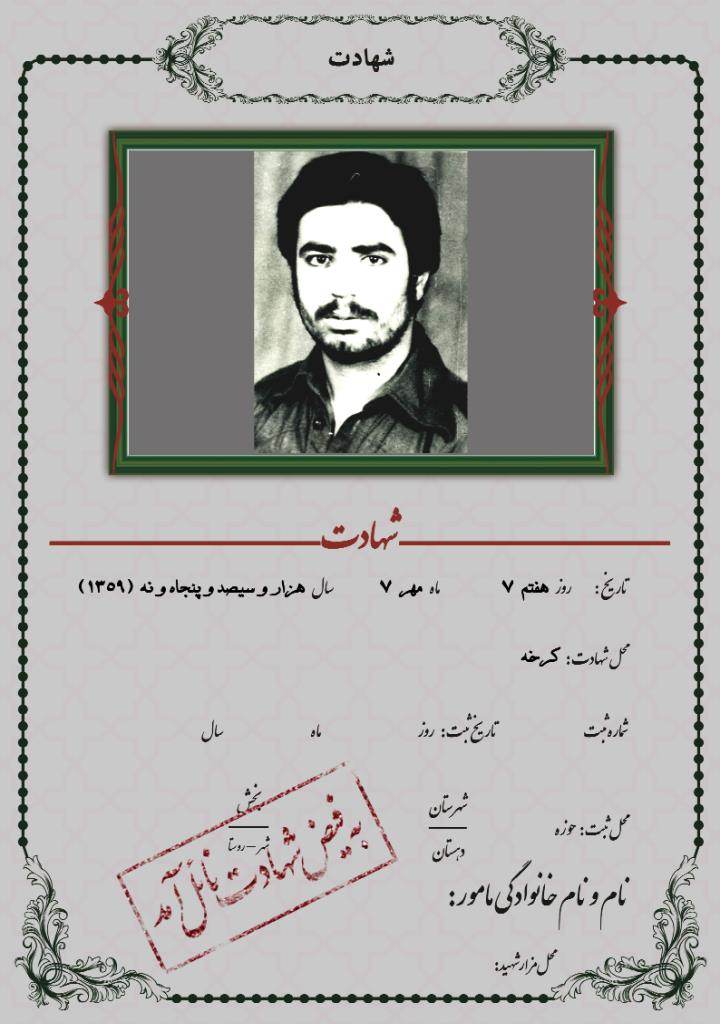 شهادت
شهادت
تاریخ: روز هفتم ۷ ماه مهر ۷ سال هزار و سیصد و پنجاه و نه (۱۳۵۹)
محل شهادت: کرخه
شماره ثبت تاریخ ثبت: روز ماه سال
محل ثبت: حوزه شهرستان بخش
دهستان شهر-روستا
به فیض شهادت نائل آمد
نام و نام خانوادگی مامور:
محل مزار شهید: